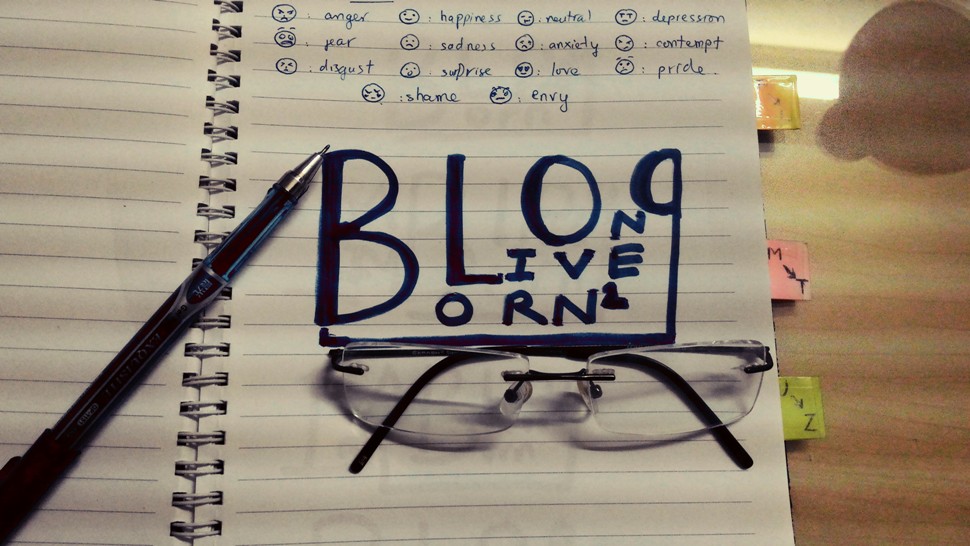 : anger : happiness : neutral : depression
: fear : sadness : anxiety : contempt
: disgust : surprise : love : pride.
: shame : envy
BLOG
N
LIVE
BORN2
M
T
N
Z